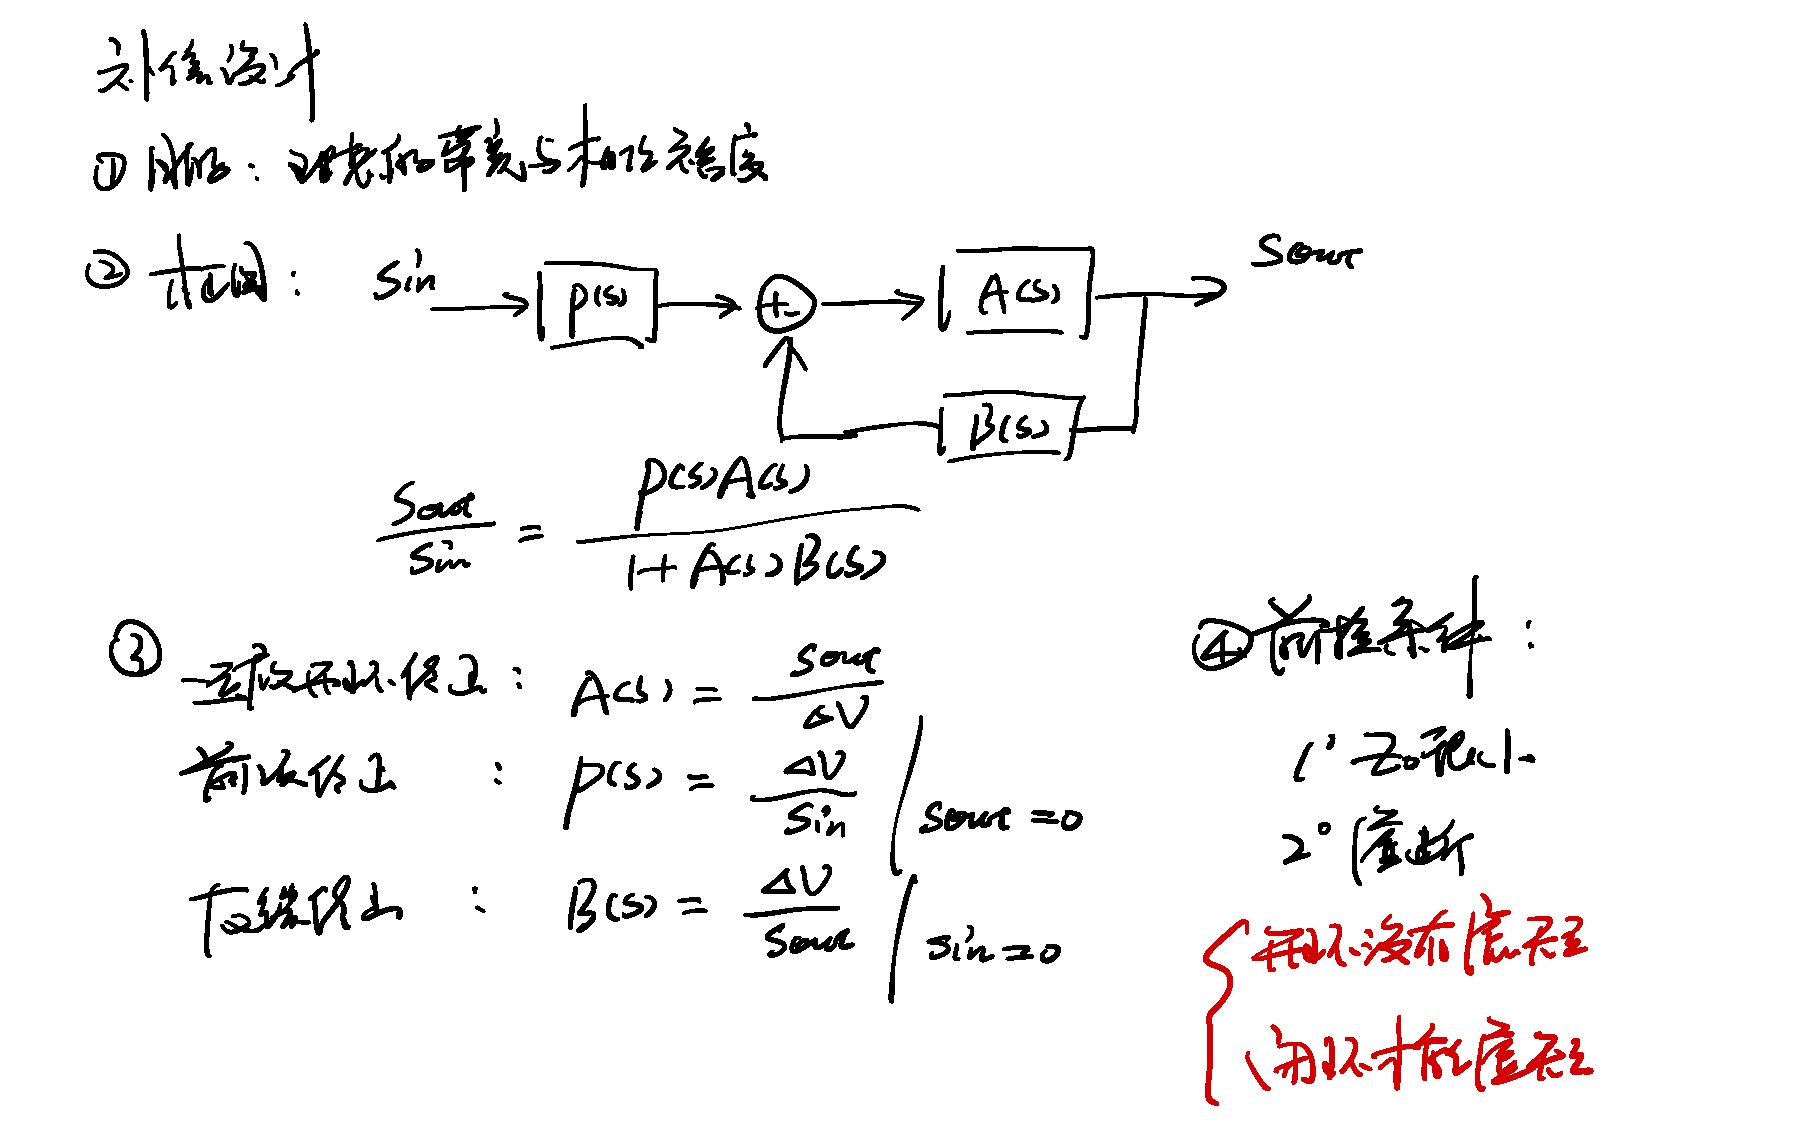 补偿设计
① 目的：理想的带宽与相位裕度
② 框图： Sin P(s) + - A(s) Sout
B(s)
Sout/Sin = P(s)A(s)/(1+A(s)B(s))
③
运放开环修正： A(s) = Sout/ΔV
前级修正 ： P(s) = ΔV/Sin | Sout=0
反馈修正 ： B(s) = ΔV/Sout | Sin=0
④ 前提条件：
1° Zo很小
2° 虚断
开环没有虚短
闭环才能虚短